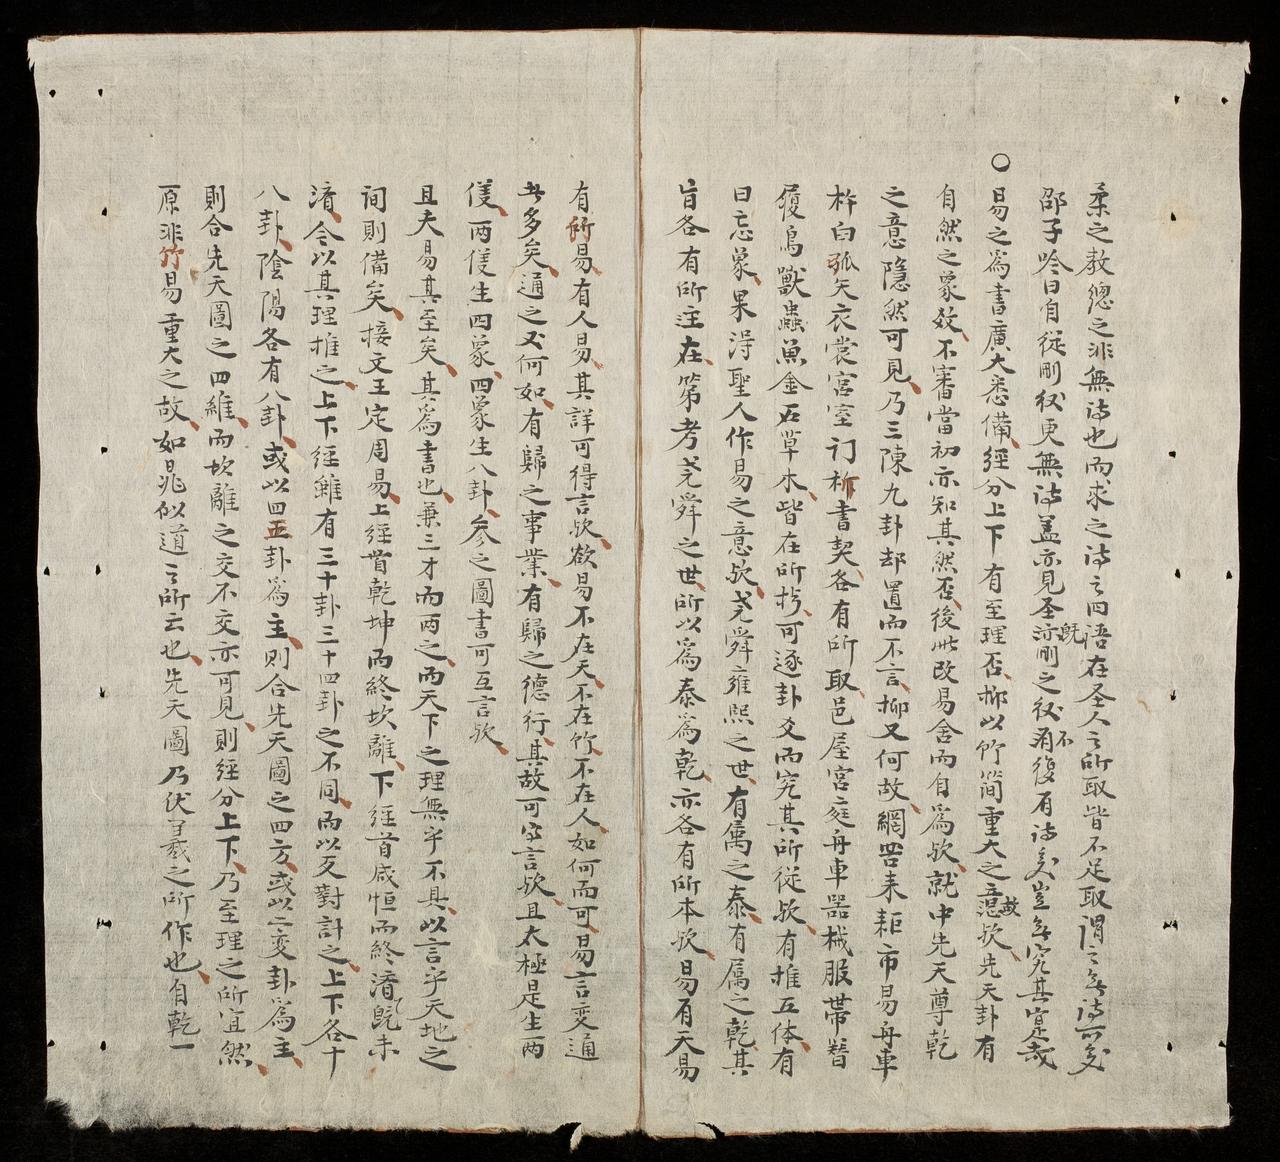 柔之教總之非無詩也而求之詩之四語在圣人之所取皆不足取謂之無詩可矣
邵子吟曰自從刪後更無詩蓋亦見圣亦既刪之後不復有詩矣豈無究其寔哉
○易之為書廣大悉備經分上下有至理否抑以竹簡重大之故歟先天卦有
自然之象效不審當初亦知其然否後此改易舍而自為歟就中先天尊乾
之意隱然可見乃三陳九卦却置而不言抑又何故網罟耒耜市易舟車
杵臼弧矢衣裳宮室门柝書契各有所取邑屋宮庭舟車器械服帶
履鳥獸蟲魚金石草木皆在所拧可逐卦爻而究其所從歟有推互体有
曰忘象果得聖人作易之意歟尧舜雍熙之世有属之泰有属之乾其
旨各有所注在第考尧舜之世所以為泰為乾亦各有所本歟易有天易
有所易有人易其詳可得言歟欲易不在天不在竹不在人如何而可易言变通
者多矣通之又何如有歸之事業有歸之德行其故可字言歟且太極是生兩
仪兩仪生四象四象生八卦參之圖書可互言歟
且夫易其至矣其為書也兼三才而两之而天下之理無乎不具以言乎天地之
间則備矣接文王定周易上經首乾坤而終坎離下經首咸恒而終濟既未
濟今以其理推之上下經雖有三十卦三十四卦之不同而以反對計之上下各十
八卦陰陽各有八卦或以四五卦為主則合先天圖之四方或以二变卦為主
則合先天圖之四維而坎離之交不交亦可見則經分上下乃至理之所宜然
原非竹易重大之故如晁似道之所云也先天圖乃伏羲之所作也自乾一